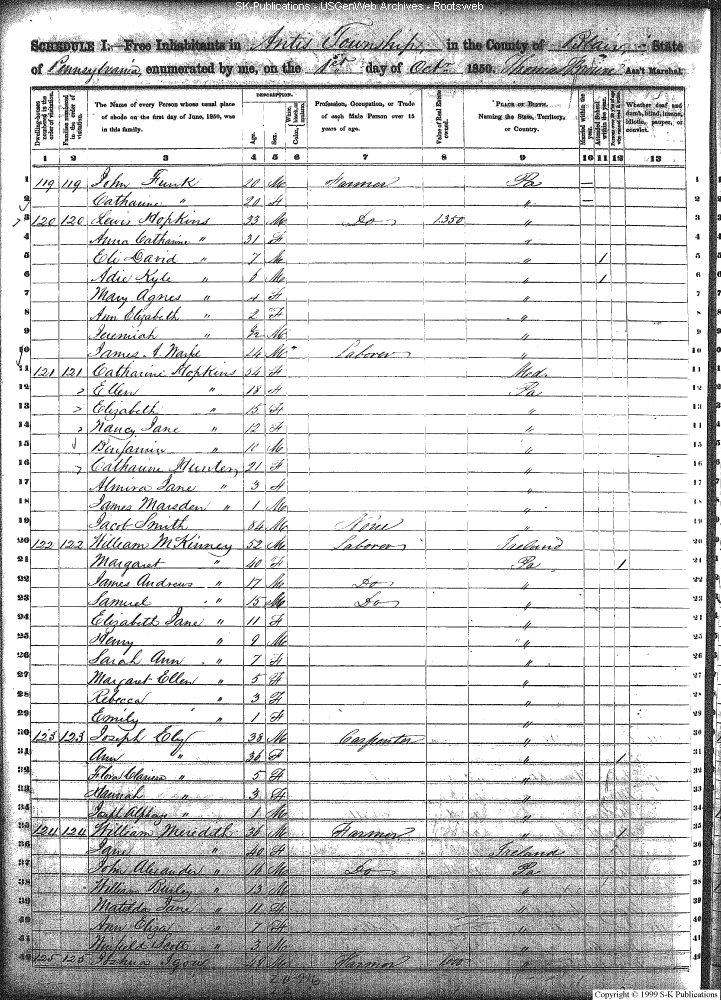 SK-Publications - USGenWeb Archives - Rootsweb
SCHEDULE I.—Free Inhabitants in Antis Township in the County of Blair State
of Pennsylvania enumerated by me, on the 1st day of Octr 1850. Thomas Ass't Marshal.
Dwelling-houses numbered in the order of visitation.
Families numbered in the order of visitation.
The Name of every Person whose usual place of abode on the first day of June, 1850, was in this family.
DESCRIPTION.
Age.
Sex.
White, black, or mulatto.
Color,
Profession, Occupation, or Trade of each Male Person over 15 years of age.
Value of Real Estate owned.
PLACE OF BIRTH. Naming the State, Territory, or Country.
Married within the year.
Attended School within the year.
Whether deaf and dumb, blind, insane, idiotic, pauper, or convict.
1 2 3 4 5 6 7 8 9 10 11 12 13
1 119 119 John Funk 20 M Farmer Pa — 1
2 Catharine " 20 F " — 2
3 120 120 Lewis Hopkins 33 M Do 1350 " 3
4 Anna Catharine " 31 F " 4
5 Eli David " 7 M " 1 5
6 Adie Kyle " 6 M " 1 6
7 Mary Agnes " 4 F " 7
8 Ann Elizabeth " 2 F " 8
9 Jeremiah " M " 9
10 James A. 24 M " Laborer " 10
11 121 121 Catharine Hopkins 54 F Md. 11
12 Ellen " 18 F Pa 12
13 Elizabeth " 15 F " 13
14 Nancy Jane " 12 F " 14
15 Benjamin " M " 15
16 Catharine Hunter 21 F " 16
17 Almira Jane " 3 F " 17
18 James Marsden " 1 M " 18
19 Jacob Smith 84 M None " 19
20 122 122 William McKinney 52 M Laborer Ireland 20
21 Margaret " 40 F Pa 1 21
22 James Andrews " 17 M Do " 22
23 Samuel " 15 M Do " 23
24 Elizabeth Jane " 11 F " 24
25 Henry " 9 M " 25
26 Sarah Ann " 7 F " 26
27 Margaret Ellen " 5 F " 27
28 Rebecca " 3 F " 28
29 Emily " 1 F " 29
30 123 123 Joseph Ely 38 M Carpenter " 30
31 Ann " 36 F " 1 31
32 Flora " 5 F " 32
33 Hannah " 3 F " 33
34 Joseph " 1 M " 34
35 124 124 William Meredith 36 M Farmer " 1 35
36 Jane " 40 F Ireland 36
37 John Alexander " 16 M Do Pa 37
38 William " 13 M " 38
39 Matilda Jane " 11 F " 39
40 Ann Eliza " 7 F " 40
41 Winfield Scott " 3 M " 41
42 125 125 Joshua 48 M Farmer " 42
Copyright © 1999 S-K Publications